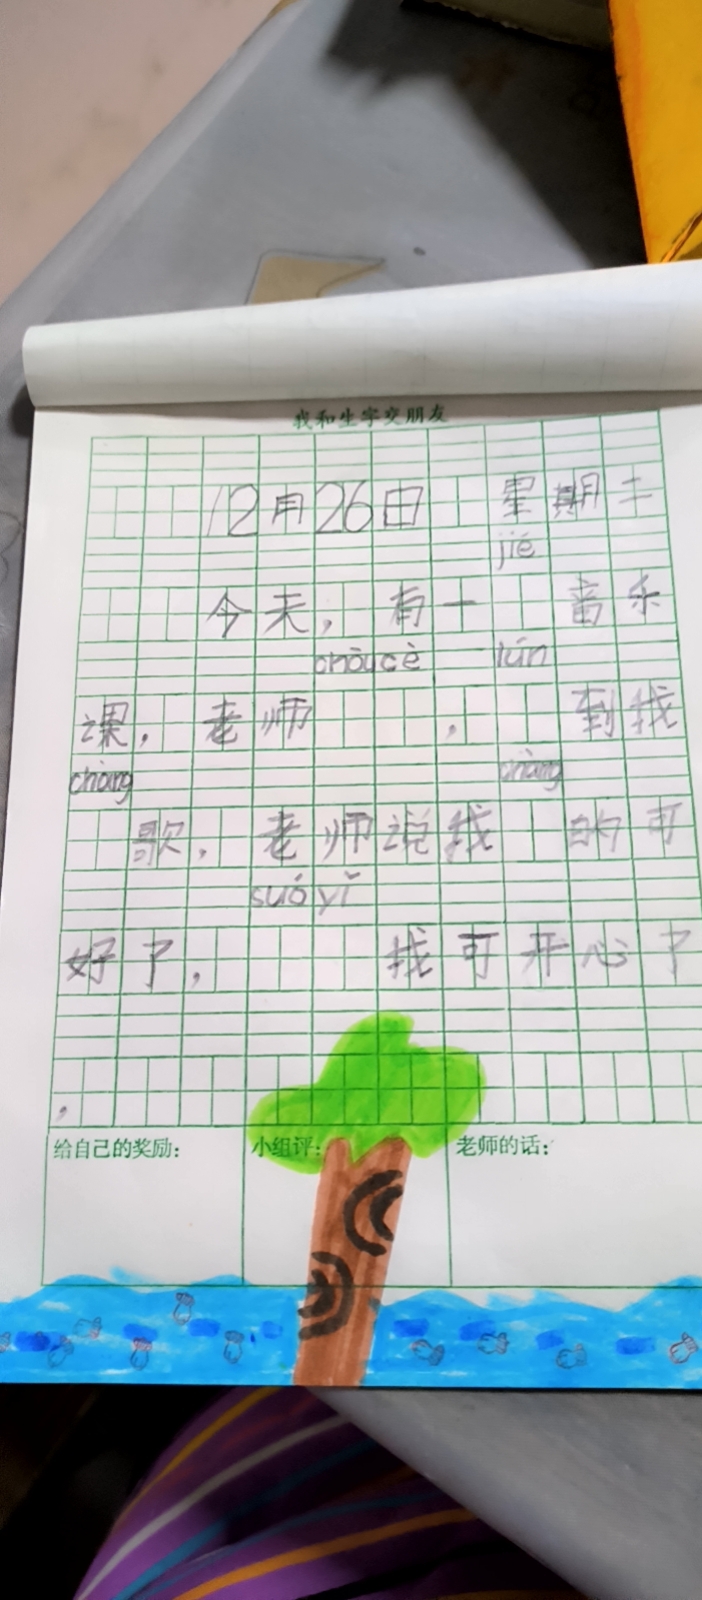 我和生字交朋友
12月26日 星期二
jié
今天,有一 音乐
chōucè lún
课,老师 , 到找
chàng chàng
歌,老师说找 的可
suóyǐ
好了, 找可开心了
,
给自己的奖励: 小组评: 老师的话: